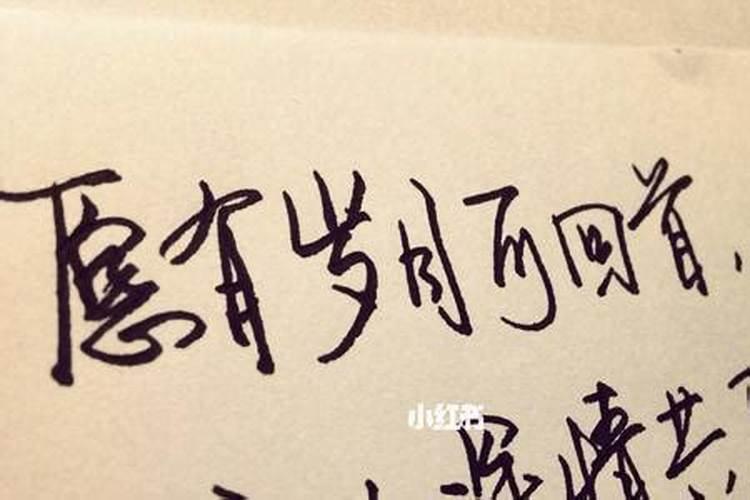 愿有岁月可回首,
深情共
小红书